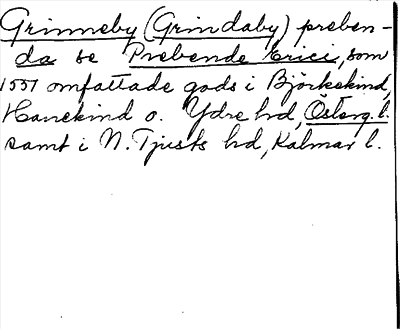 Grinneby (Grindaby) preben-
da se Prebende Erici, som
1557 omfattade gods i Björkekind,
Hanekind o. Ydre hd, Österg. l.
samt i N. Tjusts hd, Kalmar l.